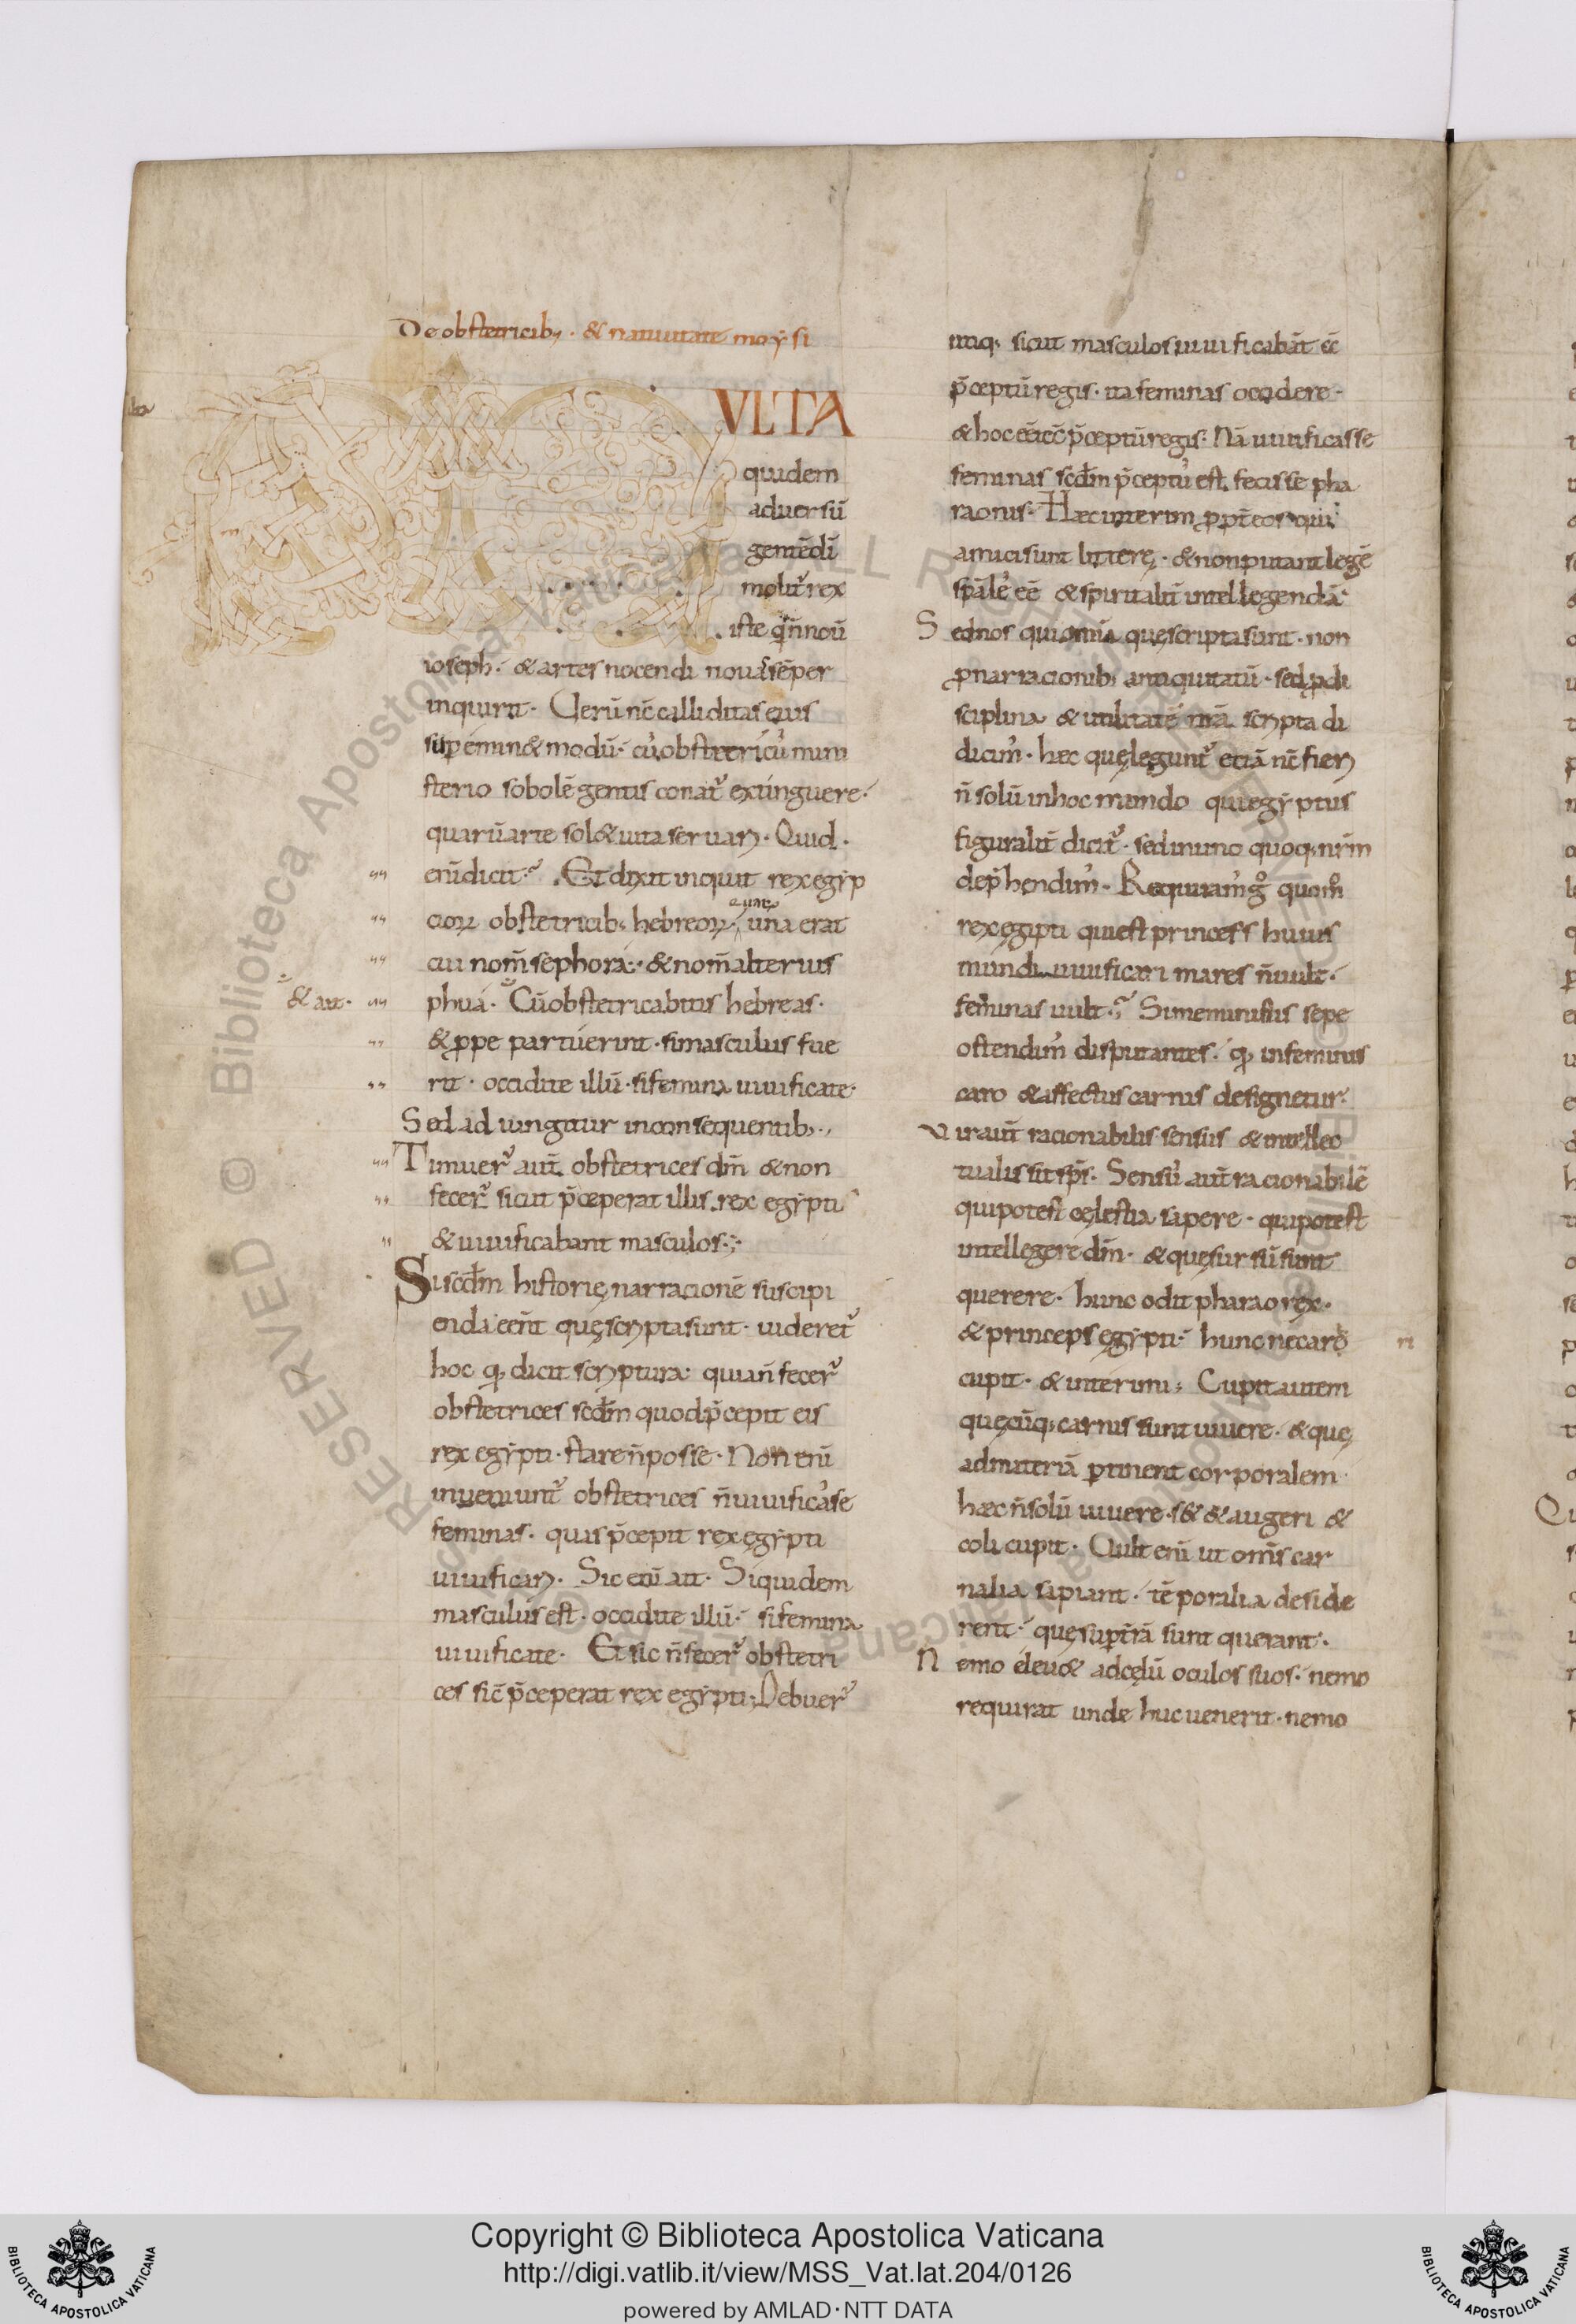 De obstetricib; · & natiuitate moẏsi
VLTA
quidem
aduersū
gentē dī
molit᷑ rex
iste q̄ n̄ nou̅
ioseph · & artes nocendi nouas sēper
inquirit · Uerū nc̄ calliditas eius
sup̱eminet modū · cū obstetricū mini
sterio sobolē gentis conat᷑ extinguere ·
quarū arte sol& uita seruari · Quid
enī dicit · Et dixit inquit rex egẏp
cioꝝ obstetricib; hebreoꝝ · una erat
quarū
cui nom̄ sephora · & nom̄ alterius
phua · Cū obstetricabitis hebreas ·
& ait ·
& ꝓpe partuerint · si masculus fue
rit · occidite illū · si femina uiuificate ·
Sed adiungitur in consequentib; ·
Timuer᷑ aut̄ obstetrices dm̄ & non
fecer᷑ sicut p̄ceperat illis rex egẏpti
& uiuificabant masculos ·
Si scd̄m historię narracionē suscipi
enda eēnt quę scripta sunt · uideret᷑
hoc qđ dicit scriptura quia n̄ fecer᷑
obstetrices scd̄m quod p̄cepit eis
rex egẏpti · stare n̄ posse · Non enī
inueniunt᷑ obstetrices n̄ uiuificasse
feminas · quas p̄cepit rex egẏpti
uiuificari · Sic enī ait · Siquidem
masculus est · occidite illū · si femina
uiuificate · Et sic n̄ fecer᷑ obstetri
ces sic̄ p̄ceperat rex egẏpti · Debuer᷑
itaq; sicut masculos uiuificabāt
p̄ceptū regis · ita feminas occidere ·
& hoc p̄ceptū regis · Nā uiuificasse
feminas scd̄m p̄ceptū est fecisse pha
raonis · Hæc interim ꝓpt̄ eos qui
amici sunt litterę · & non putant legē
sp̄alē eē & spiritalit̄ intellegendā
Sed nos qui om̄ia quę scripta sunt · non
ꝓ narracionib; antiquitatū · sed ꝓ di
sciplina & utilitate nr̄a scripta di
dicim᷒ · hæc quę legunt᷑ etiā nc̄ fieri
n̄ solū in hoc mundo qui egẏptus
figuralit̄ dicit᷑ · sed in uno quoq; nr̄m
dep̄hendim᷒ · Requiram᷒ g̊ quom̊
rex egipti qui est princeps huius
mundi uiuificari mares n̄ uult ·
feminas uult · Si meministis sepe
ostendim᷒ disputantes · qđ in feminis
caro & affectus carnis designetur ·
Uir aut̄ racionabilis sensus & intellec
tualis sit sp̄s · Sensū aut̄ racionabilē
qui potest cęlestia sapere · qui potest
intellegere dm̄ · & quę sursū sunt
querere · hunc odit pharao rex ·
& princeps egẏpti · hunc necaro
ri
cupit · & interimi ; Cupit autem
quęcūq; carnis sunt uiuere · & quę
ad materiā p̱tinent corporalem
hæc n̄ solū uiuere · s& & augeri &
coli cupit · Uult enī ut om̄s car
nalia sapiant · tēporalia deside
rent · quę sup̱ t̄rā sunt querant ·
Nemo eleu& ad cęlū oculos suos · nemo
requirat unde huc uenerit · nemo
Copyright © Biblioteca Apostolica Vaticana
http://digi.vatlib.it/view/MSS_Vat.lat.204/0126
powered by AMLAD·NTT DATA
BIBLIOTECA APOSTOLICA VATICANA
BIBLIOTECA APOSTOLICA VATICANA